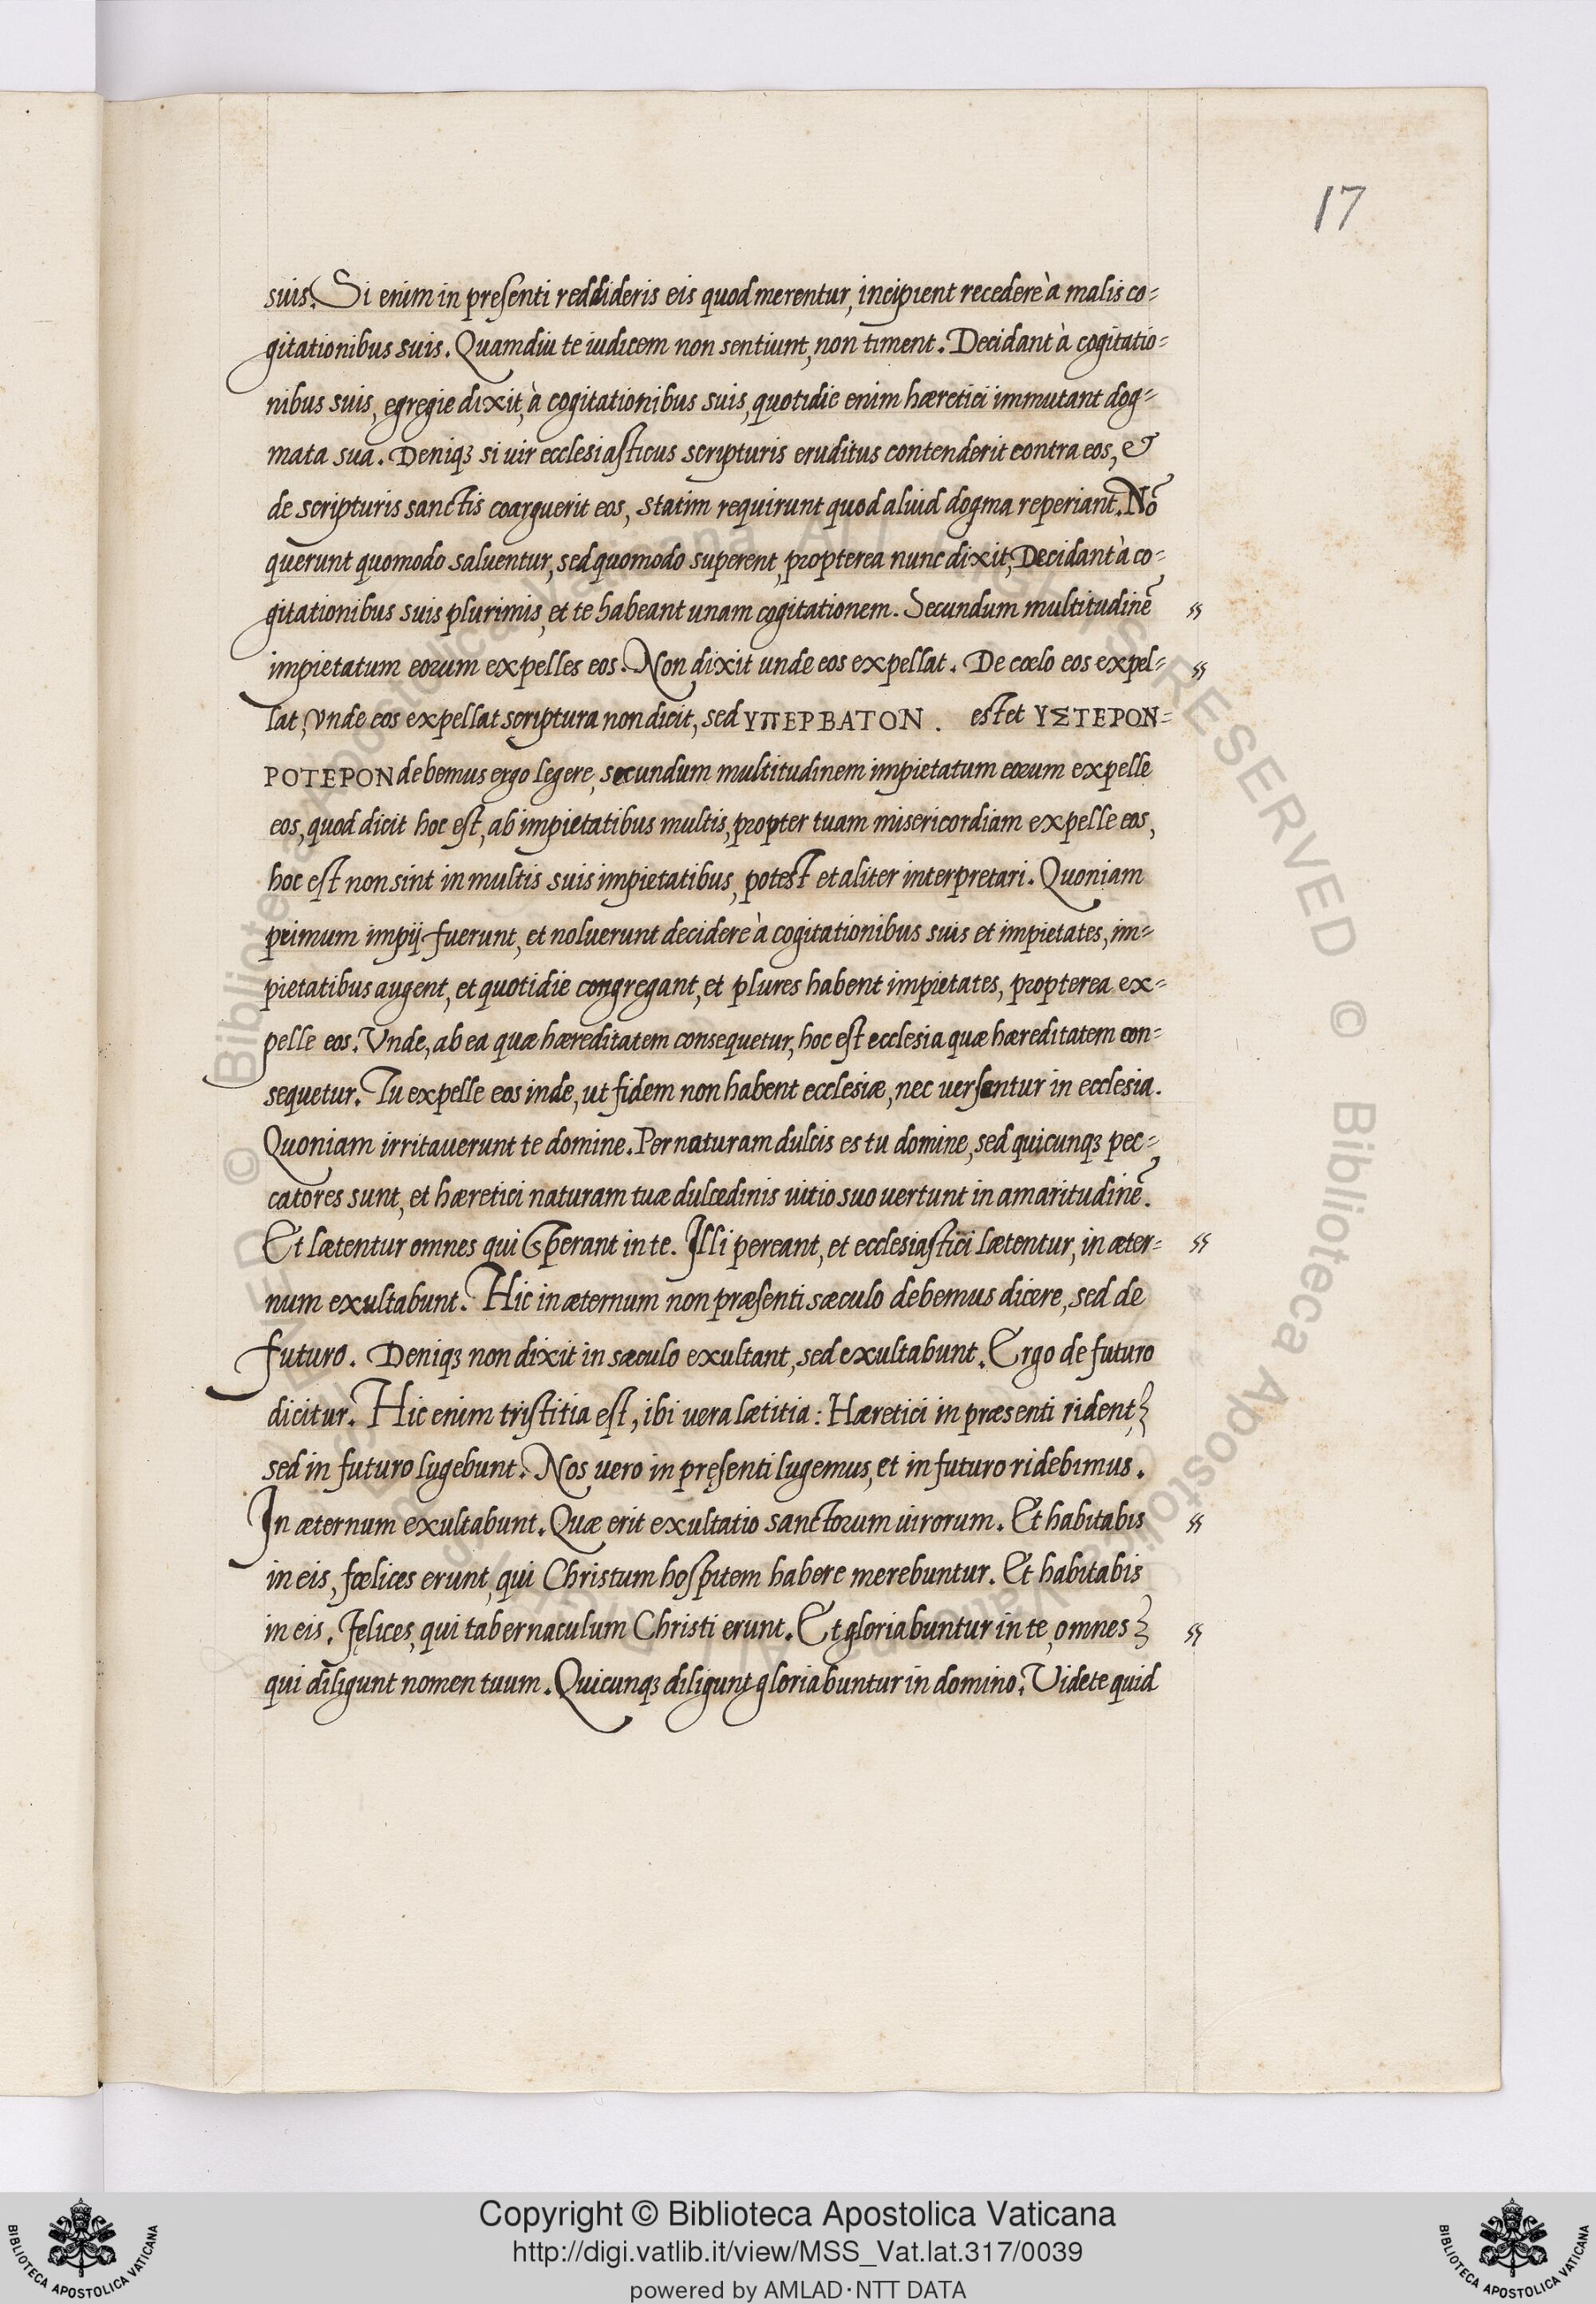 17
suis. Si enim in presenti reddideris eis quod merentur, incipient recedere à malis co=
gitationibus suis. Quamdiu te iudicem non sentiunt, non timent. Decidant à cogitatio=
nibus suis, egregie dixit, à cogitationibus suis, quotidie enim hæretici immutant dog=
mata sua. Deniqꝫ si uir ecclesiasticus scripturis eruditus contenderit contra eos, &
de scripturis sanctis coarguerit eos, statim requirunt quod aluid dogma reperiant. Nō
querunt quomodo saluentur, sed quomodo superent, propterea nunc dixit, Decidant à co=
gitationibus suis plurimis, et te habeant unam cogitationem. Secundum multitudinē "
impietatum eorum expelles eos. Non dixit unde eos expellat. De cœlo eos expel= "
lat, Vnde eos expellat scriptura non dicit, sed ΥπΕΡΒΑΤΟΝ . estet ΥΣΤΕΡΟΝ=
ΡΟΤΕΡΟΝ debemus ergo legere, secundum multitudinem impietatum eorum expelle
eos, quod dicit hoc est, ab impietatibus multis, propter tuam misericordiam expelle eos,
hoc est non sint in multis suis impietatibus, potest et aliter interpretari. Quoniam
primum impij fuerunt, et noluerunt decidere à cogitationibus suis et impietates, im=
pietatibus augent, et quotidie congregant, et plures habent impietates, propterea ex=
pelle eos. Vnde, ab ea quæ hæreditatem consequetur, hoc est ecclesia quæ hæreditatem con=
sequetur. Tu expelle eos inde, ut fidem non habent ecclesiæ, nec uersentur in ecclesia.
Quoniam irritauerunt te domine. Per naturam dulcis es tu domine, sed quicunqꝫ pec=
catores sunt, et hæretici naturam tuæ dulcedinis uitio suo uertunt in amaritudinē.
Et lætentur omnes qui sperant in te. Illi pereant, et ecclesiastici lætentur, in æter= "
num exultabunt. Hic in æternum non præsenti sæculo debemus dicere, sed de
futuro. Deniqꝫ non dixit in sæculo exultant, sed exultabunt. Ergo de futuro
dicitur. Hic enim tristitia est, ibi uera lætitia: Hæretici in præsenti rident,
sed in futuro lugebunt. Nos uero in pręsenti lugemus, et in futuro ridebimus.
In æternum exultabunt. Quæ erit exultatio sanctorum uirorum. Et habitabis "
in eis, fœlices erunt, qui Christum hospitem habere merebuntur. Et habitabis
in eis. Felices, qui tabernaculum Christi erunt. Et gloriabuntur in te, omnes "
qui diligunt nomen tuum. Quicunqꝫ diligunt gloriabuntur in domino. Videte quid
© Biblioteca Apostolica Vaticana
ALL RIGHTS RESERVED
Copyright © Biblioteca Apostolica Vaticana
http://digi.vatlib.it/view/MSS_Vat.lat.317/0039
powered by AMLAD·NTT DATA
BIBLIOTECA APOSTOLICA VATICANA
BIBLIOTECA APOSTOLICA VATICANA